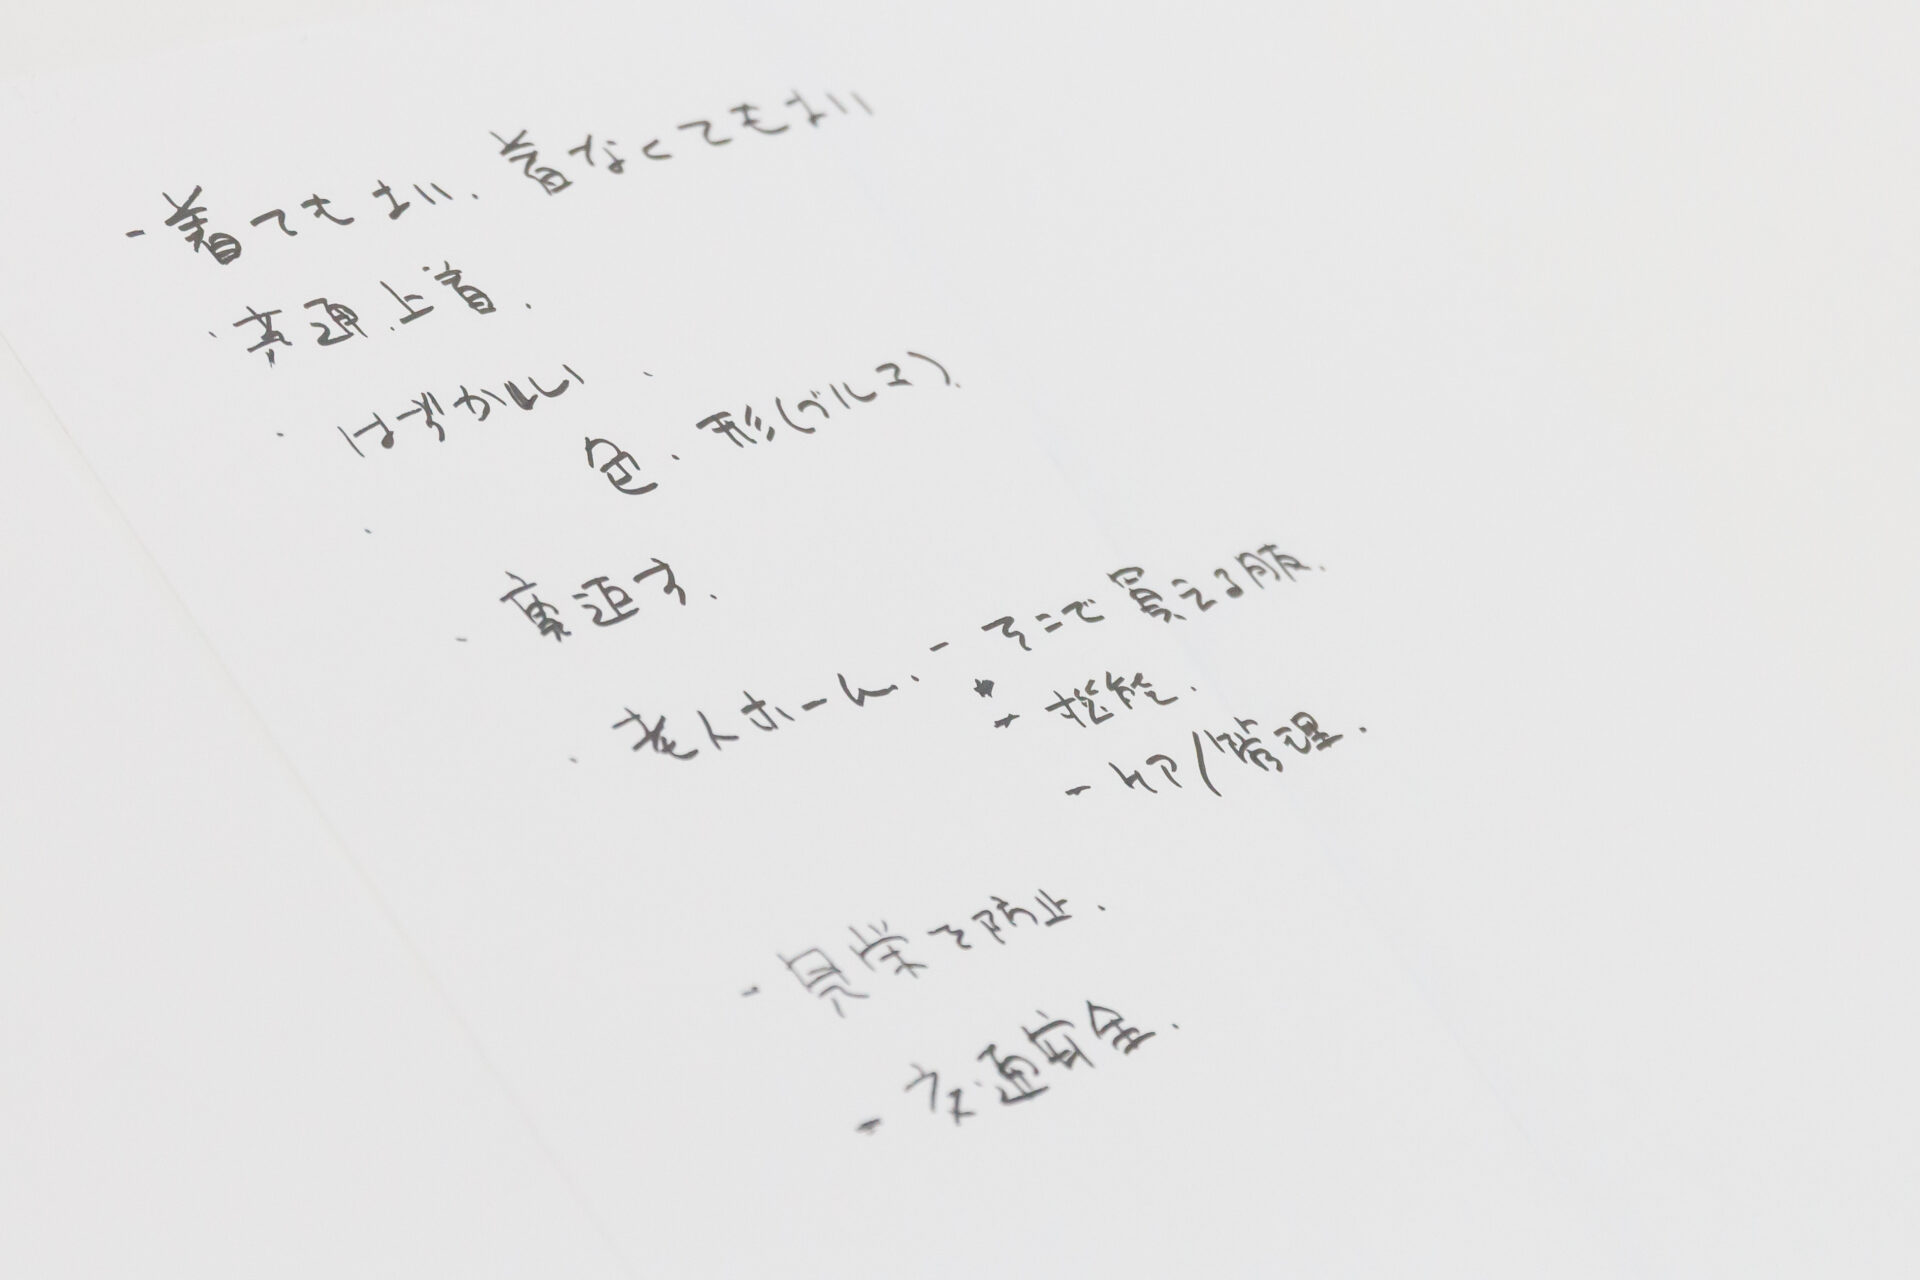 - 着てもよい、着なくてもよい
・共通上着.
・はずかしい.
色・形(ダルマ).
・裏返す.
・老人ホーム. - そこで買える服.
- 機能.
- ケア/管理.
- 見栄で防止.
- 交通安全.